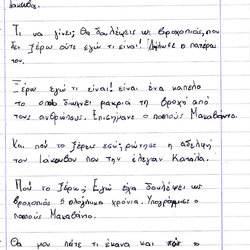 Ιάκωβος.
Τι να γίνει; Θα δουλέψεις ως βροχοποιός, που
δεν ξέρω ούτε εγώ τι είναι! Δήλωσε ο πατέρας
του.
Ξέρω εγώ τι είναι! είναι ένα καπέλο
το οποίο διώχνει μακριά τη βροχή από
τους ανθρώπους. Επισήμανε ο παππούς Μακαβάντο.
Και πού το ξέρεις εσύ; ρώτησε η αδελφή
του Ιάκωβου που την έλεγαν Καπέλα.
Πού το ξέρω; Εγώ είχα δουλέψει ως
βροχοποιός 5 ολόκληρα χρόνια. Υπογράμμισε ο
παππούς Μακαβάντο.
Θα μου πάτε τι έκανα και πού το